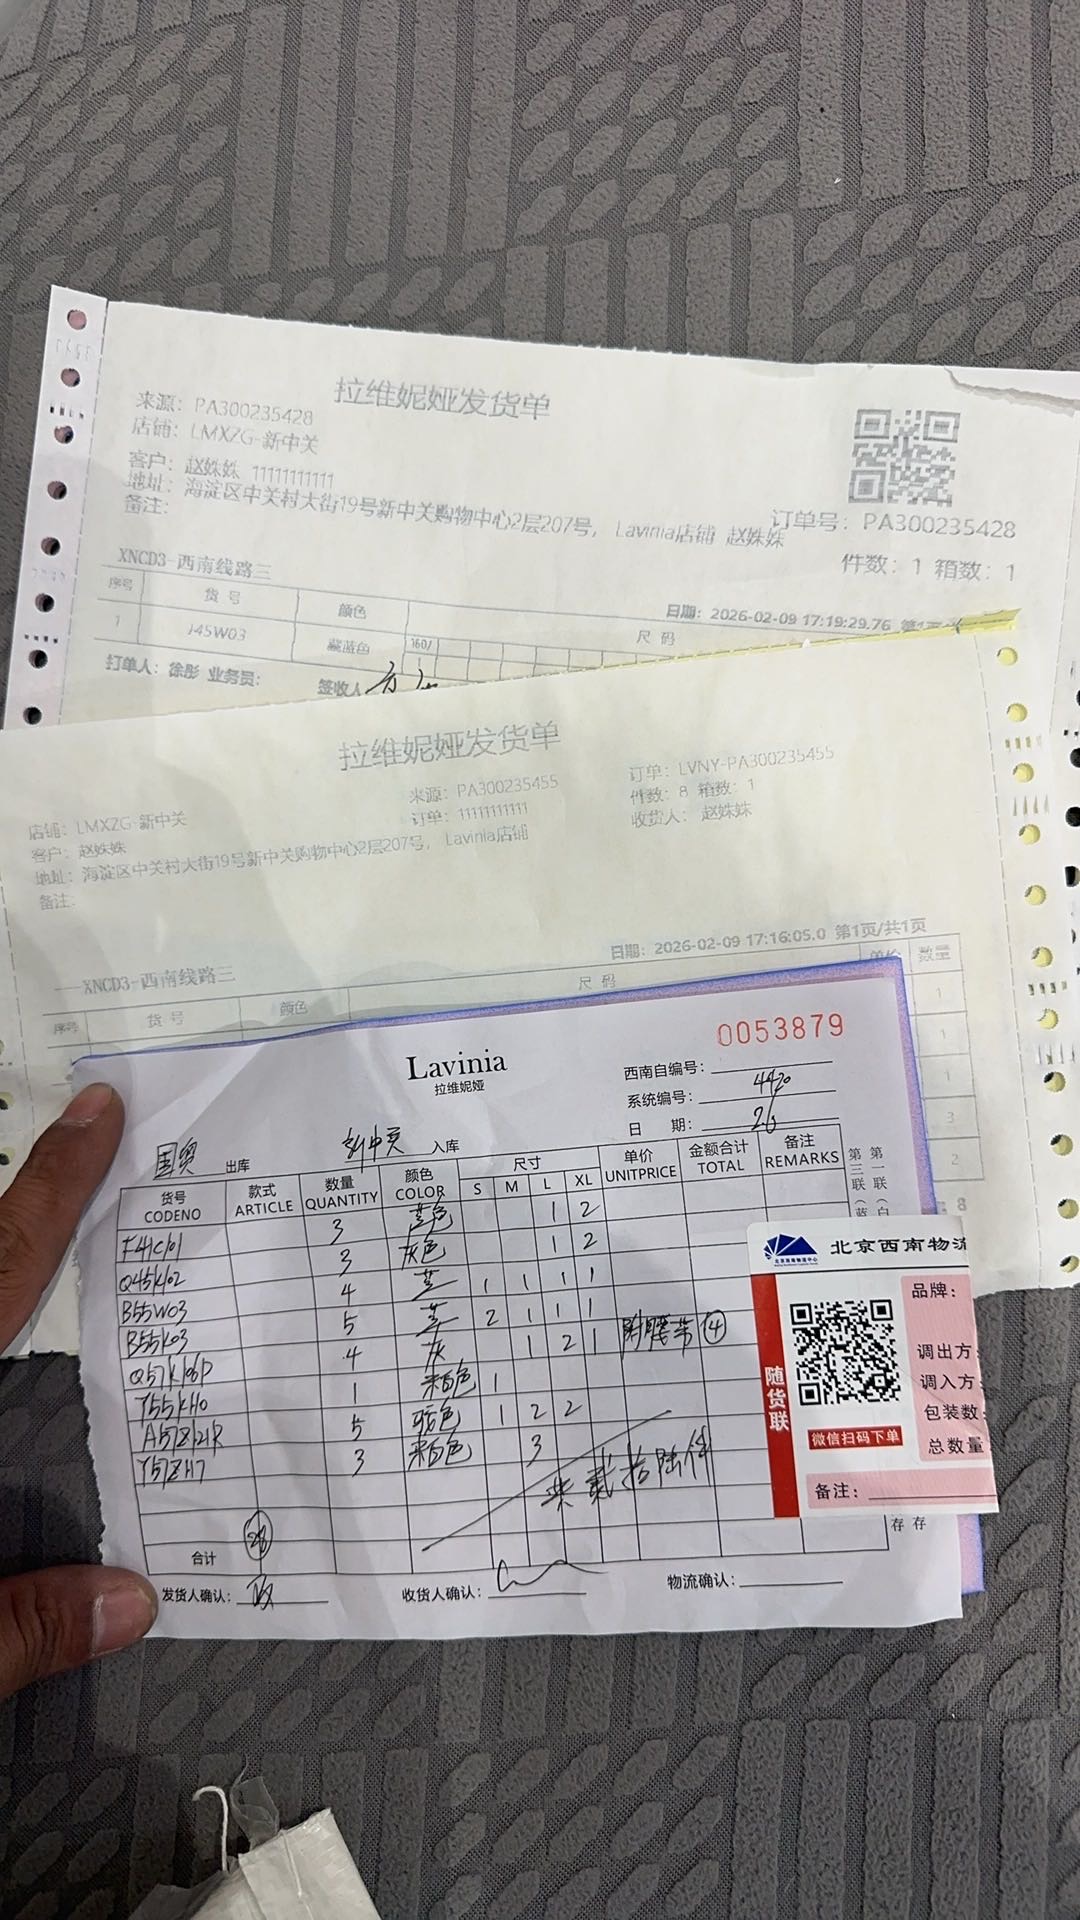 拉维妮娅发货单
来源：PA300235428
店铺：LMXZG-新中关
客户：赵姝姝 11111111111
地址：海淀区中关村大街19号新中关购物中心2层207号，Lavinia店铺 赵姝姝
备注：
订单号：PA300235428
件数：1 箱数：1
XNCD3-西南线路三
日期：2026-02-09 17:19:29.76
序号 货号 颜色 尺码
160/
1 J45W03 藏蓝色
打单人：徐彤 业务员： 签收人
拉维妮娅发货单
店铺：LMXZG-新中关 来源：PA300235455 订单：LVNY-PA300235455
客户：赵姝姝 订单：11111111111 件数：8 箱数：1
地址：海淀区中关村大街19号新中关购物中心2层207号，Lavinia店铺 收货人：赵姝姝
备注：
XNCD3-西南线路三 日期：2026-02-09 17:16:05.0 第1页/共1页
序号 货号 颜色 尺码 单价 数量
1
1
1
3
2
8
0053879
Lavinia
拉维妮娅
西南自编号：
系统编号：4420
日期：26
国贸 出库 新中关 入库
货号 CODENO 款式 ARTICLE 数量 QUANTITY 颜色 COLOR 尺寸 S M L XL 单价 UNITPRICE 金额合计 TOTAL 备注 REMARKS
F41C101 3 1 2
Q45K102 3 灰色 1 2
B55W03 4 1 1 1 1
B55K03 5 2 1 1 1
Q57K106P 4 灰 1 2 1 附腰带④
Y55KH0 1 米白色 1
A57Z121R 5 驼色 1 2 2
Y57ZH7 3 米白色 3
共贰拾陆件
合计
发货人确认： 收货人确认： 物流确认：
第一联
第三联
存 存
北京西南物流
随货联
微信扫码下单
品牌：
调出方：
调入方：
包装数：
总数量
备注：